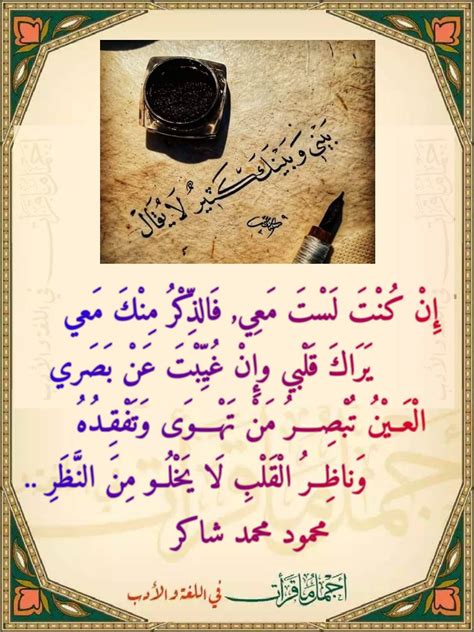 بَيْني وَبَيْنَكَ كَثيرٌ لَا يُقَالْ
إِنْ كُنْتَ لَسْتَ مَعِي, فَالذِّكْرُ مِنْكَ مَعي
يَرَاكَ قَلْبي وإِنْ غُيِّبْتَ عَنْ بَصَري
الْعَـيْنُ تُبْصِـرُ مَنْ تَهْـوَى وَتَفْقِـدُهُ
وَناظِـرُ الْقَلْبِ لَا يَخْلُـو مِنَ النَّظَرِ ..
محمود محمد شاكر
أجمل ما قرأت في اللغة والأدب